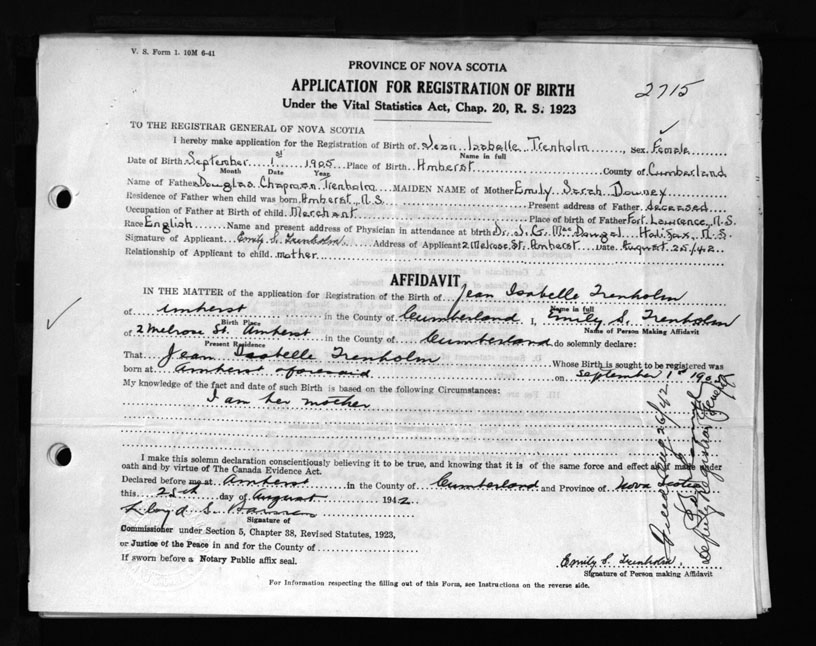 V. S. Form 1. 10M 6-41
PROVINCE OF NOVA SCOTIA
APPLICATION FOR REGISTRATION OF BIRTH
2715
Under the Vital Statistics Act, Chap. 20, R. S. 1923
TO THE REGISTRAR GENERAL OF NOVA SCOTIA
I hereby make application for the Registration of Birth of Jean Isabelle Trenholm, Sex Female
Name in full
Date of Birth September 1st 1905 Place of Birth Amherst County of Cumberland
Month Date Year
Name of Father Douglas Chapman Trenholm MAIDEN NAME of Mother Emily Sarah Downey
Residence of Father when child was born Amherst, N.S. Present address of Father deceased
Occupation of Father at Birth of child Merchant Place of birth of Father Fort Lawrence, N.S.
Race English Name and present address of Physician in attendance at birth Dr. J. G. MacDougal Halifax, N.S.
Signature of Applicant Emily S. Trenholm Address of Applicant 2 Melrose St. Amherst Date August 25/42
Relationship of Applicant to child mother
AFFIDAVIT
IN THE MATTER of the application for Registration of the Birth of Jean Isabelle Trenholm
Name in full
of Amherst in the County of Cumberland I, Emily S. Trenholm
Birth Place Name of Person Making Affidavit
of 2 Melrose St. Amherst in the County of Cumberland do solemnly declare:
Present Residence
That Jean Isabelle Trenholm Whose Birth is sought to be registered was
born at Amherst aforesaid on September 1st 1905
My knowledge of the fact and date of such Birth is based on the following Circumstances:
I am her mother
I make this solemn declaration conscientiously believing it to be true, and knowing that it is of the same force and effect as if made under
oath and by virtue of The Canada Evidence Act.
Declared before me at Amherst in the County of Cumberland and Province of Nova Scotia
this 25th day of August 1942
Signature of
Commissioner under Section 5, Chapter 38, Revised Statutes, 1923,
or Justice of the Peace in and for the County of
If sworn before a Notary Public affix seal.
Emily S. Trenholm
Signature of Person making Affidavit
For Information respecting the filling out of this Form, see Instructions on the reverse side.
Aug 26/42
Deputy Registrar General